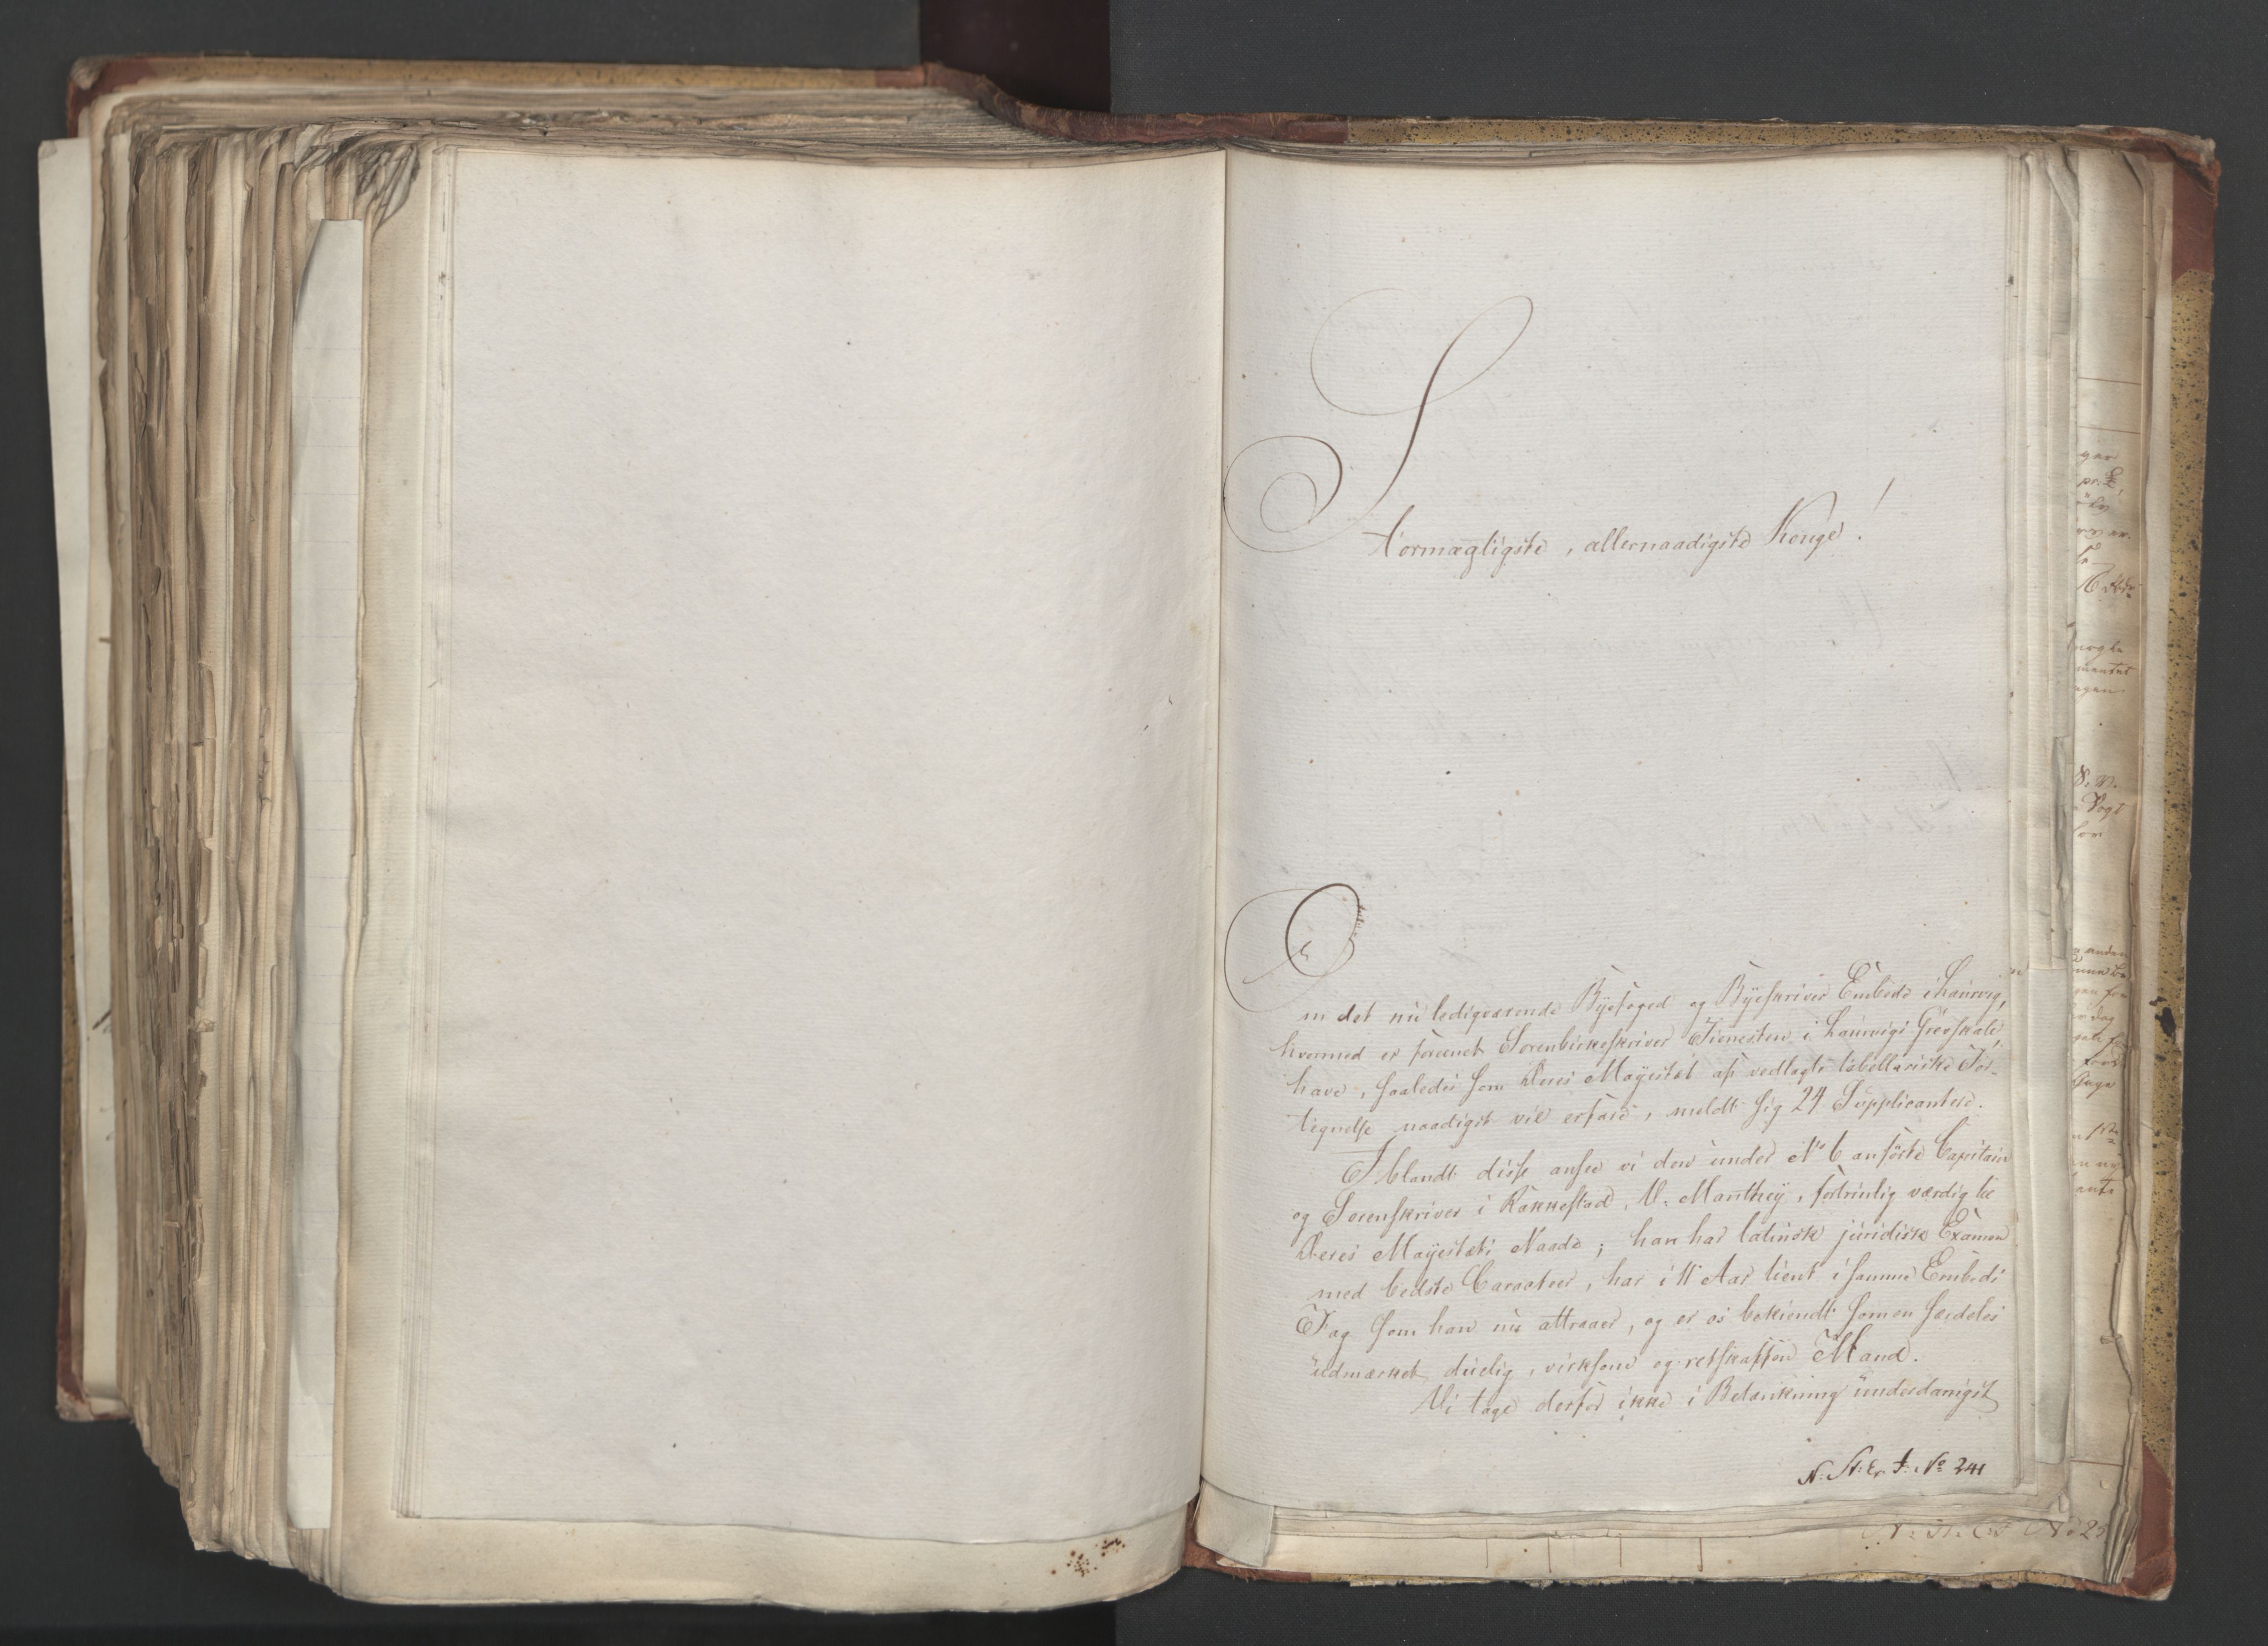 Stormægtigste, allernaadigste Konge!
Om det nu ledigværende Byefoged og Byeskriver Embede i Laurvig,
hvormed er foreenet Sorenbirkeskriver Tienesten i Laurvigs Grevskab,
have, saaledes som Deres Mayestæt af vedlagte tabellariske For-
tegnelse naadigst vil erfare, meldt sig 24 Supplicantere.
Iblandt disse ansee vi den under No 6 anførte Capitain
og Sorenskriver i Rakkestad, V. Manthey, fortrinlig værdig til
Deres Mayestæts Naade; han har latinsk juridisk Examen
med bedste Caracteer, har i 11 Aar tient i samme Embeds
Fag som han nu attraaer, og er os bekiendt som en særdeles
udmærket duelig, virksom og retskaffen Mand.
Vi tage derfor ikke i Betænkning underdanigst
N: St: Ex. J: No 241
gar
pr. E,
nogle
mentet
Vogt
for
anden
N: St: No 25